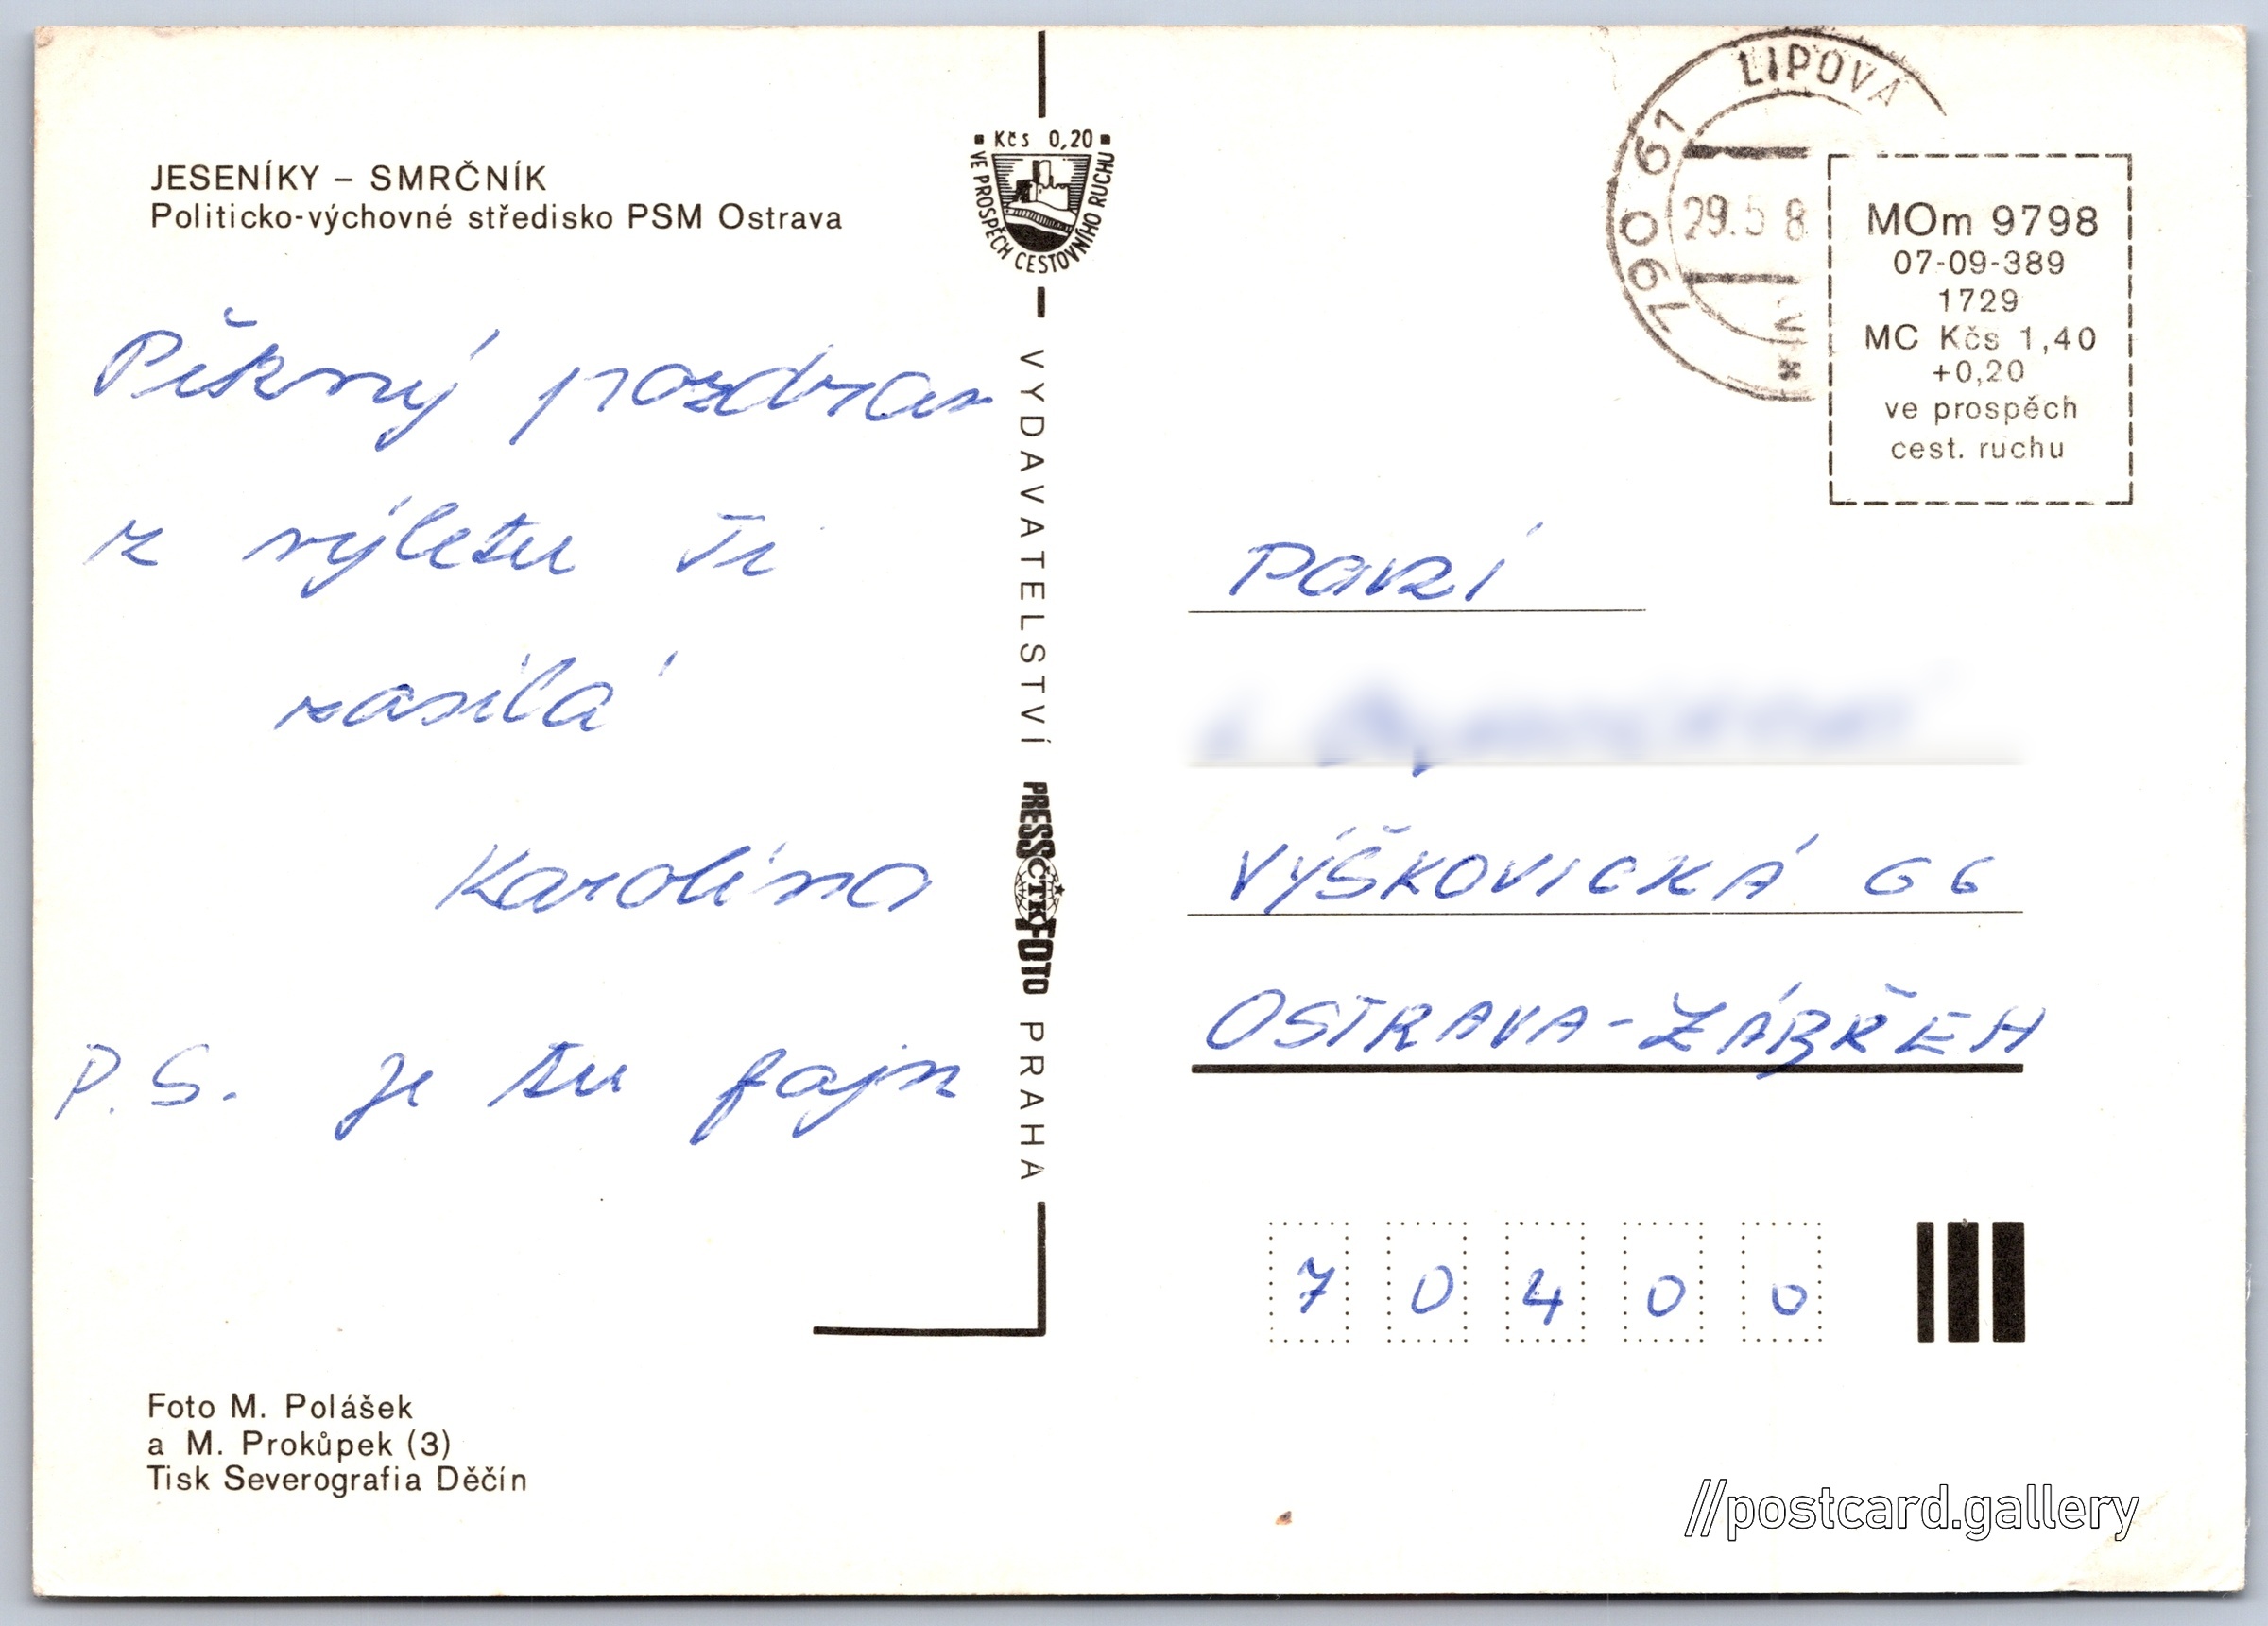 JESENÍKY – SMRČNÍK
Politicko-výchovné středisko PSM Ostrava
Pěkný pozdrav
z výletu Ti
zasílá
Karolína
P.S. je tu fajn
Foto M. Polášek
a M. Prokůpek (3)
Tisk Severografia Děčín
Kčs 0,20
VE PROSPĚCH CESTOVNÍHO RUCHU
VYDAVATELSTVÍ PRESSFOTO PRAHA
ČTK
790 61 LIPOVÁ
29.5 8
MOm 9798
07-09-389
1729
MC Kčs 1,40
+0,20
ve prospěch
cest. ruchu
VÝŠKOVICKÁ 66
OSTRAVA-ZÁBŘEH
7 0 4 0 0
//postcard.gallery